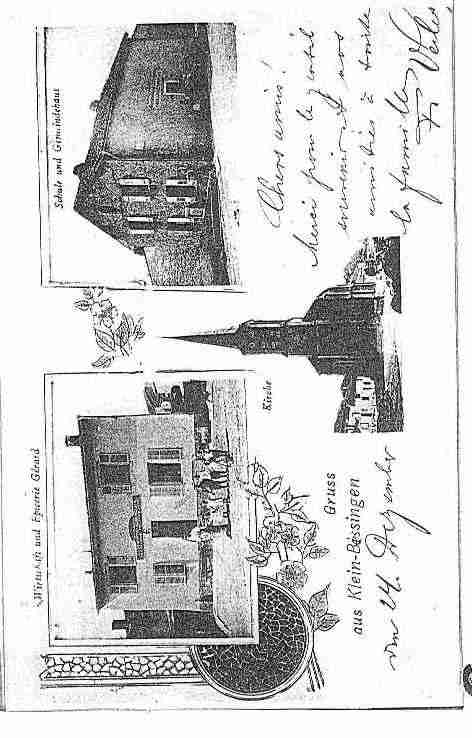 Wirtschaft und Epicerie Gérard
Schule und Gemeindehaus
Kirche
Gruss
aus Klein-Bessingen
den 24. Dezember
Chers amis!
Merci pour le gentil
souvenir et nos
amitiés à toute
la famille